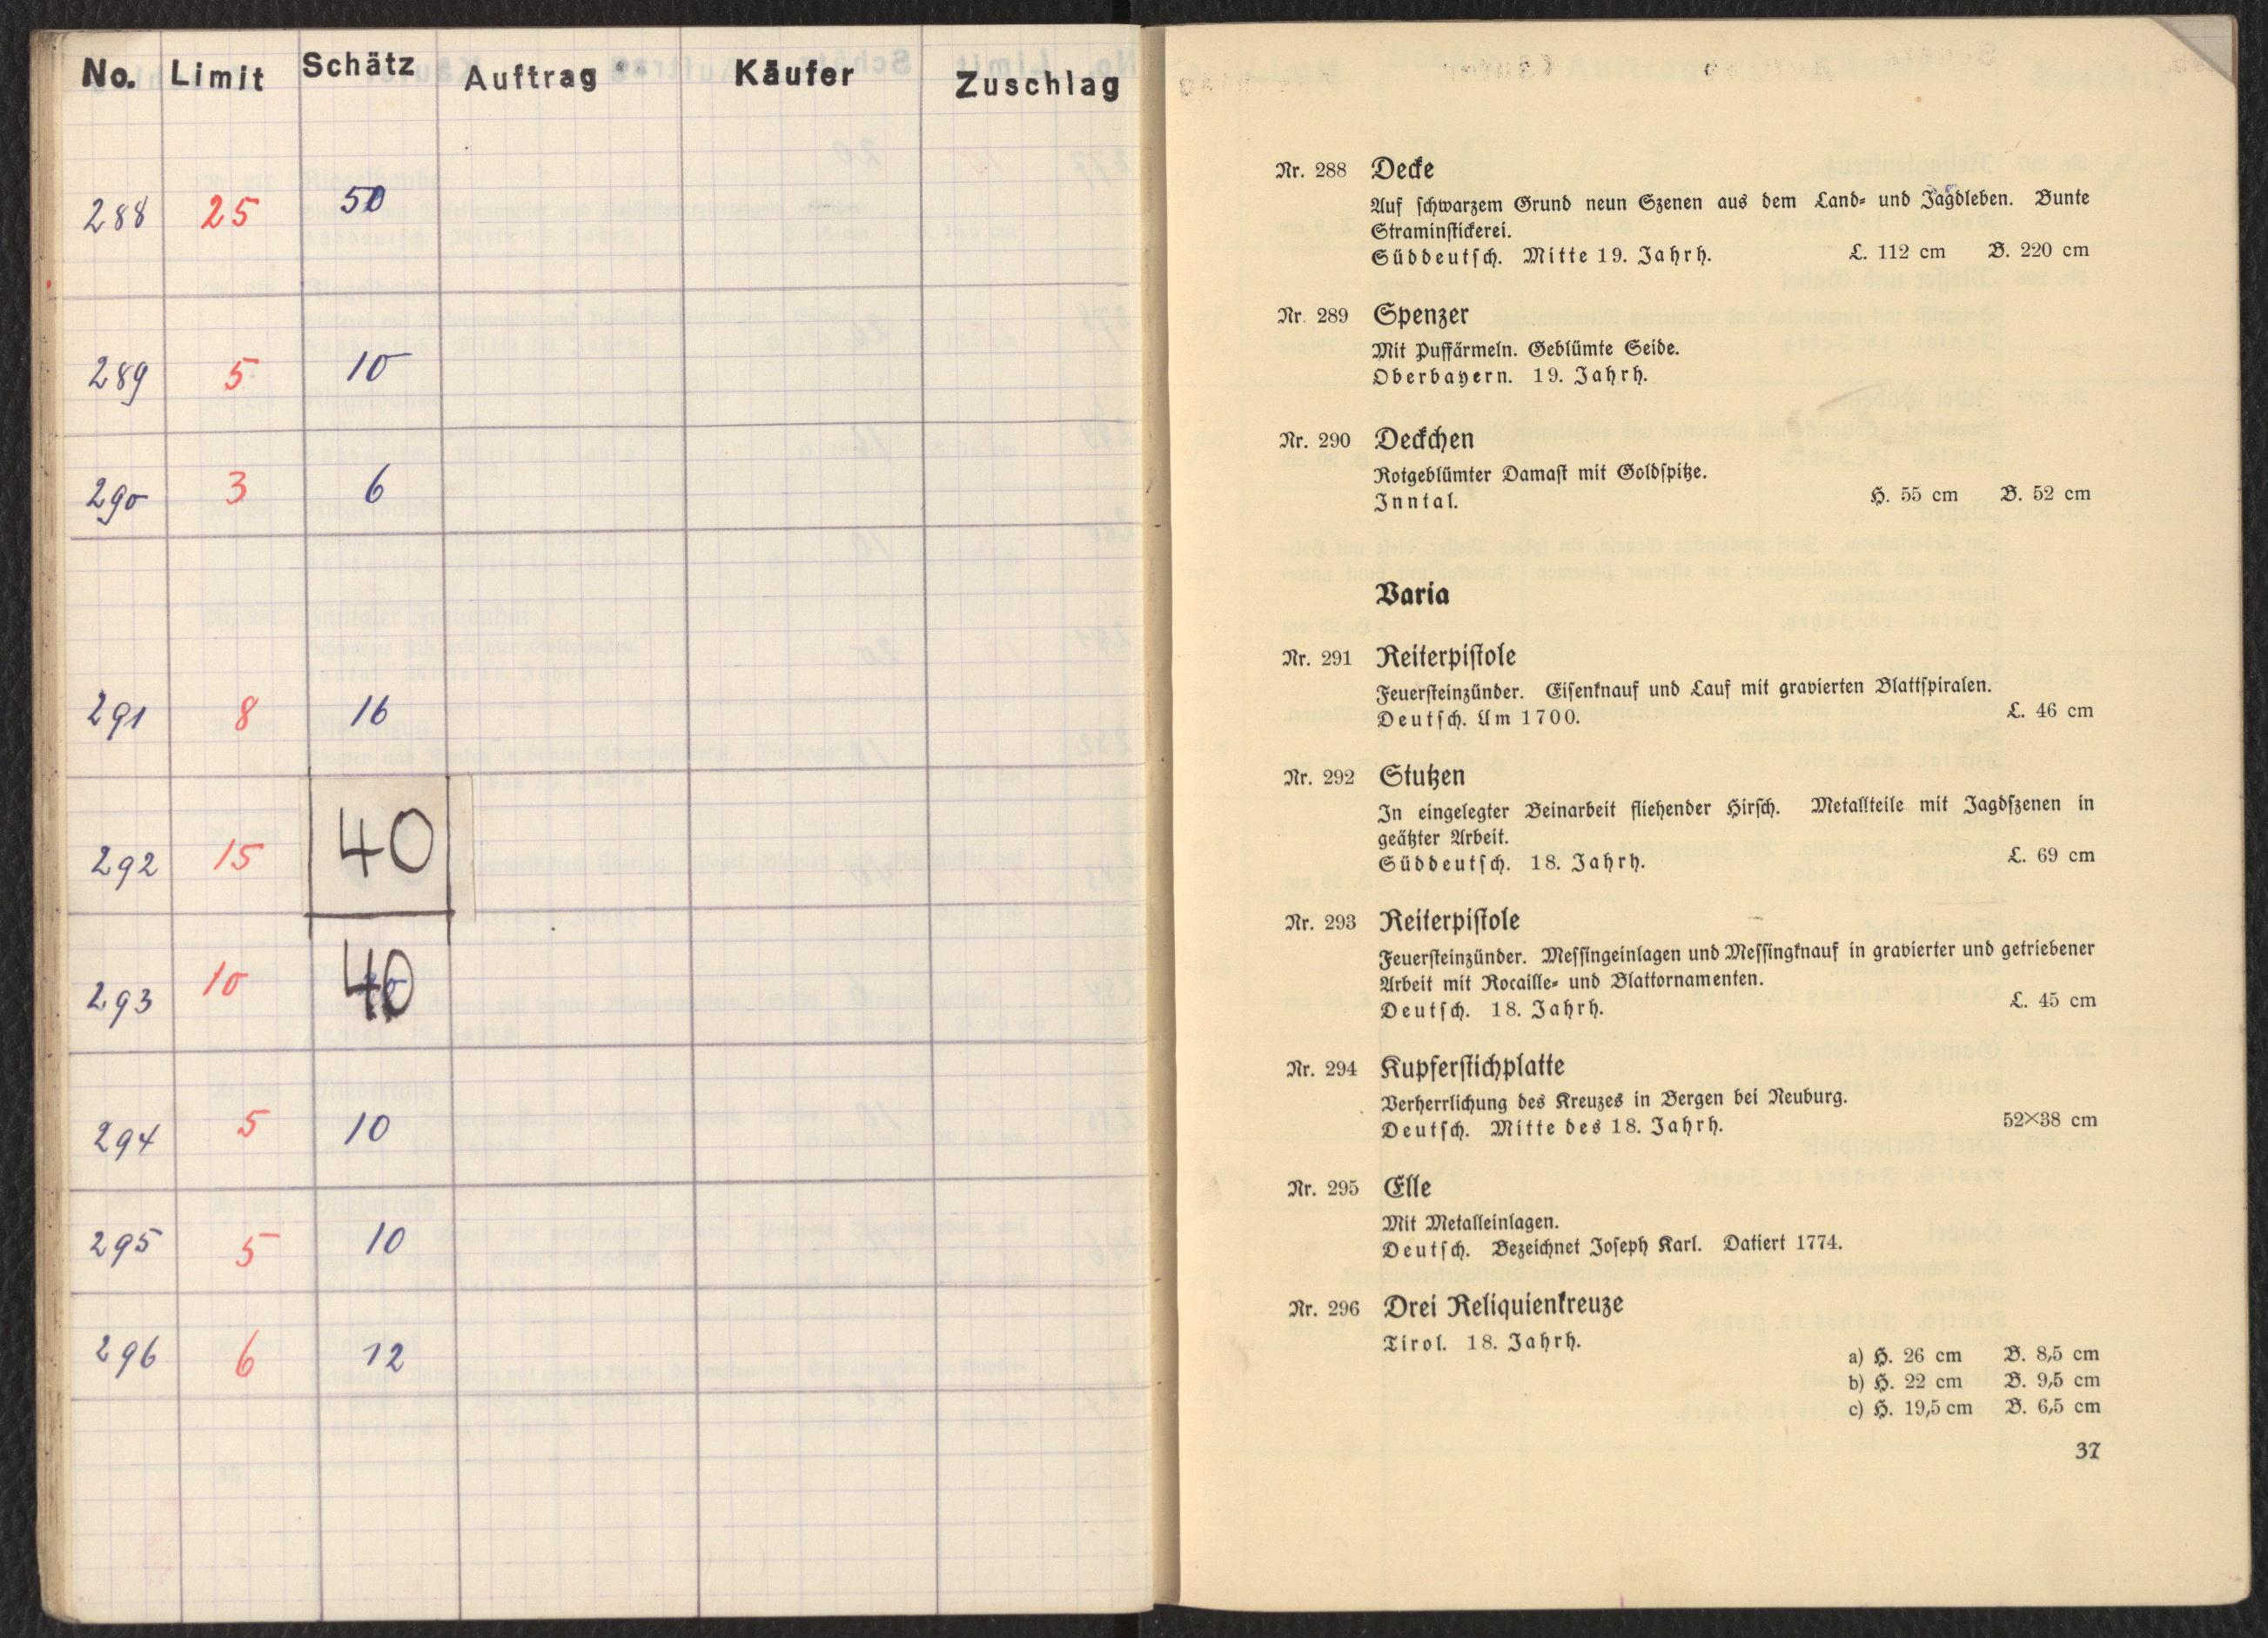 No. Limit Schätz Auftrag Käufer Zuschlag
288 25 50
289 5 10
290 3 6
291 8 16
292 15 40
293 10 40
294 5 10
295 5 10
296 6 12
Nr. 288 Decke
Auf schwarzem Grund neun Szenen aus dem Land- und Jagdleben. Bunte
Straminstickerei.
Süddeutsch. Mitte 19. Jahrh. L. 112 cm B. 220 cm
Nr. 289 Spenzer
Mit Puffärmeln. Geblümte Seide.
Oberbayern. 19. Jahrh.
Nr. 290 Deckchen
Rotgeblümter Damast mit Goldspitze.
Inntal. H. 55 cm B. 52 cm
Varia
Nr. 291 Reiterpistole
Feuersteinzünder. Eisenknauf und Lauf mit gravierten Blattspiralen.
Deutsch. Um 1700. L. 46 cm
Nr. 292 Stutzen
In eingelegter Beinarbeit fliehender Hirsch. Metallteile mit Jagdszenen in
geätzter Arbeit.
Süddeutsch. 18. Jahrh. L. 69 cm
Nr. 293 Reiterpistole
Feuersteinzünder. Messingeinlagen und Messingknauf in gravierter und getriebener
Arbeit mit Rocaille- und Blattornamenten.
Deutsch. 18. Jahrh. L. 45 cm
Nr. 294 Kupferstichplatte
Verherrlichung des Kreuzes in Bergen bei Neuburg.
Deutsch. Mitte des 18. Jahrh. 52×38 cm
Nr. 295 Elle
Mit Metalleinlagen.
Deutsch. Bezeichnet Joseph Karl. Datiert 1774.
Nr. 296 Drei Reliquienkreuze
Tirol. 18. Jahrh.
a) H. 26 cm B. 8,5 cm
b) H. 22 cm B. 9,5 cm
c) H. 19,5 cm B. 6,5 cm
37